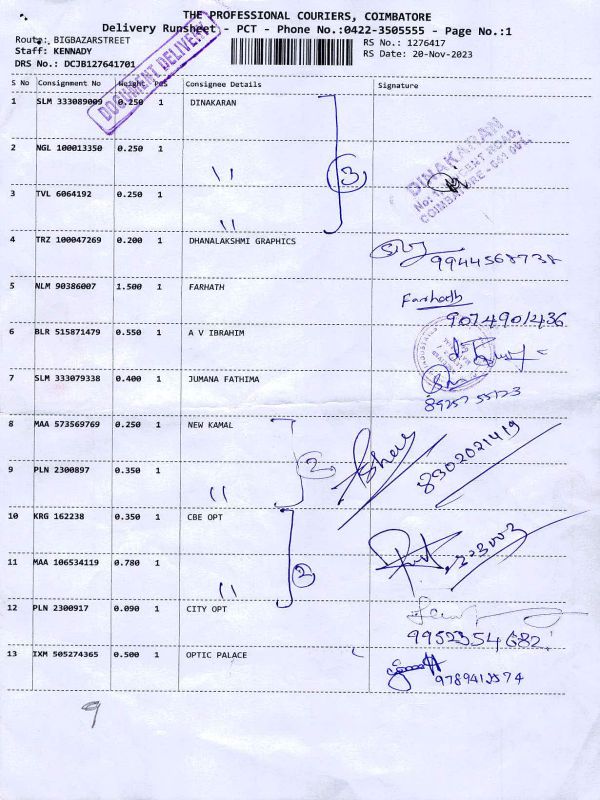 THE PROFESSIONAL COURIERS, COIMBATORE
Delivery Runsheet - PCT - Phone No.:0422-3505555 - Page No.:1
Route: BIGBAZARSTREET
RS No.: 1276417
Staff: KENNADY
RS Date: 20-Nov-2023
DRS No.: DCJB127641701
DOCUMENT DELIVERY
S No Consignment No Weight Pcs Consignee Details Signature
1 SLM 333089009 0.250 1 DINAKARAN
2 NGL 100013350 0.250 1 \\
3 3 TVL 6064192 0.250 1 \\
DINAKARAN
COIMBATORE - 641 001.
4 TRZ 100047269 0.200 1 DHANALAKSHMI GRAPHICS
9944568738
5 NLM 90386007 1.500 1 FARHATH Farhath
9074901436
6 BLR 515871479 0.550 1 A V IBRAHIM
7 SLM 333079338 0.400 1 JUMANA FATHIMA
8925755123
8 MAA 573569769 0.250 1 NEW KAMAL
2 8302021419
9 PLN 2300897 0.350 1 \\
10 KRG 162238 0.350 1 CBE OPT
223003
11 MAA 106534119 0.780 1 \\ 2
12 PLN 2300917 0.090 1 CITY OPT
9952354682
13 IXM 505274365 0.500 1 OPTIC PALACE
9789412574
9